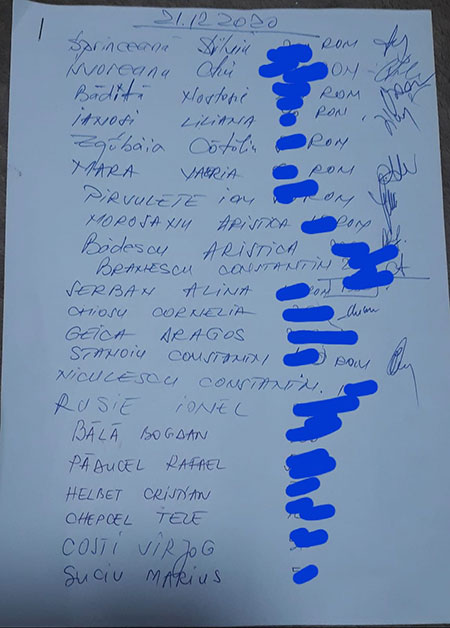 21.12.2020
Sprinceană Silviu ROM
Nuoreanu ROM
Bădiță ROM
IANOȘI LILIANA RON
Zgîbâia Cătălin ROM
MARA VALRIA ROM
PIRVULETE ION ROM
MOROSANU ARISTICA ROM
Bădescu ARISTICA
BRANESCU CONSTANTIN
SERBAN ALINA RON
CHIOSU CORNELIA
GEICA DRAGOS
STANOIU CONSTANTIN ROM
NICULESCU CONSTANTIN.
RUSIE IONEL
BĂLĂ BOGDAN
PĂDUCEL RAFAEL
HELBET CRISTIAN
CHEPCEL TELE
COSTI VÎRJOG
SUCIU MARIUS